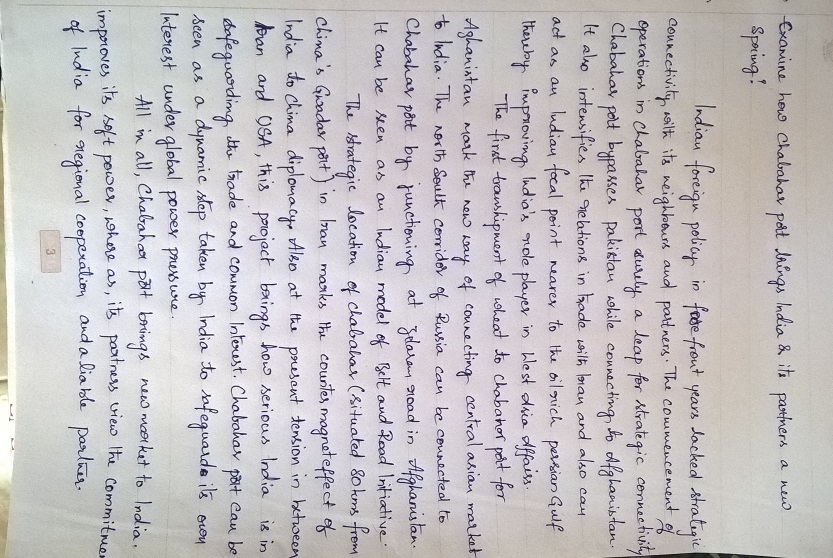 Examine how Chabahar port brings India & its partners a new
Spring?
Indian foreign policy in front years lacked strategic
connectivity with its neighbours and partners. The commencement of
operations in Chabahar port surely a leap for strategic connectivity
Chabahar port bypasses pakistan while connecting to Afghanistan.
It also intensifies the relations in trade with Iran and also can
act as an Indian focal point nearer to the oil rich persian Gulf
thereby improving India's role player in West Asia affairs.
The first transhipment of wheat to chabahar port for
Afghanistan mark the new way of connecting central asian market
to India. The north South corridor of Russia can be connected to
Chabahar port by junctioning at road in Afghanistan.
It can be seen as an Indian model of Belt and Road Initiative.
The strategic location of chabahar (situated 80 kms from
China's Gwadar port) in Iran marks the counter magnet effect of
India to China diplomacy. Also at the present tension in between
Iran and USA, this project brings how serious India is in
safeguarding the trade and common Interest. Chabahar port can be
seen as a dynamic step taken by India to safeguards its own
Interest under global power pressure.
All in all, Chabahar port brings new market to India.
improves its soft power, where as, its partners view the commitmen
of India for regional cooperation and a liable partner.
3